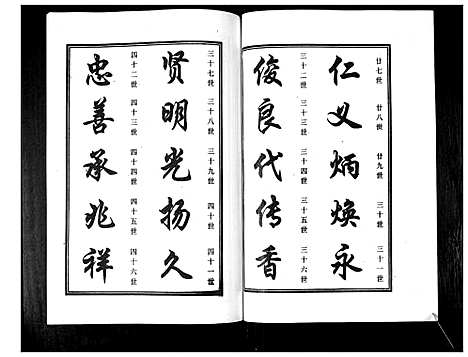 廿七世 廿八世 廿九世 三十世 三十一世
仁义炳焕永
三十二世 三十三世 三十四世 三十五世 三十六世
俊良代传香
三十七世 三十八世 三十九世 四十世 四十一世
贤明光扬久
四十二世 四十三世 四十四世 四十五世 四十六世
忠善承兆祥